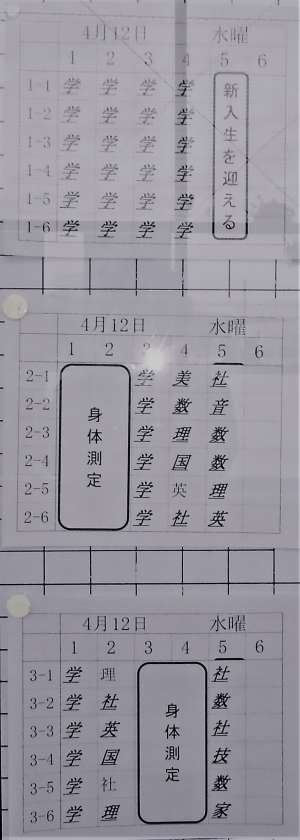 4月12日 水曜
1 2 3 4 5 6
1-1 学 学 学 学
1-2 学 学 学 学
1-3 学 学 学 学
1-4 学 学 学 学
1-5 学 学 学 学
1-6 学 学 学 学
新入生を迎える
4月12日 水曜
1 2 3 4 5 6
2-1 学 美 社
2-2 学 数 音
2-3 学 理 数
2-4 学 国 数
2-5 学 英 理
2-6 学 社 英
身体測定
4月12日 水曜
1 2 3 4 5 6
3-1 学 理 社
3-2 学 社 数
3-3 学 英 社
3-4 学 国 技
3-5 学 社 数
3-6 学 理 家
身体測定